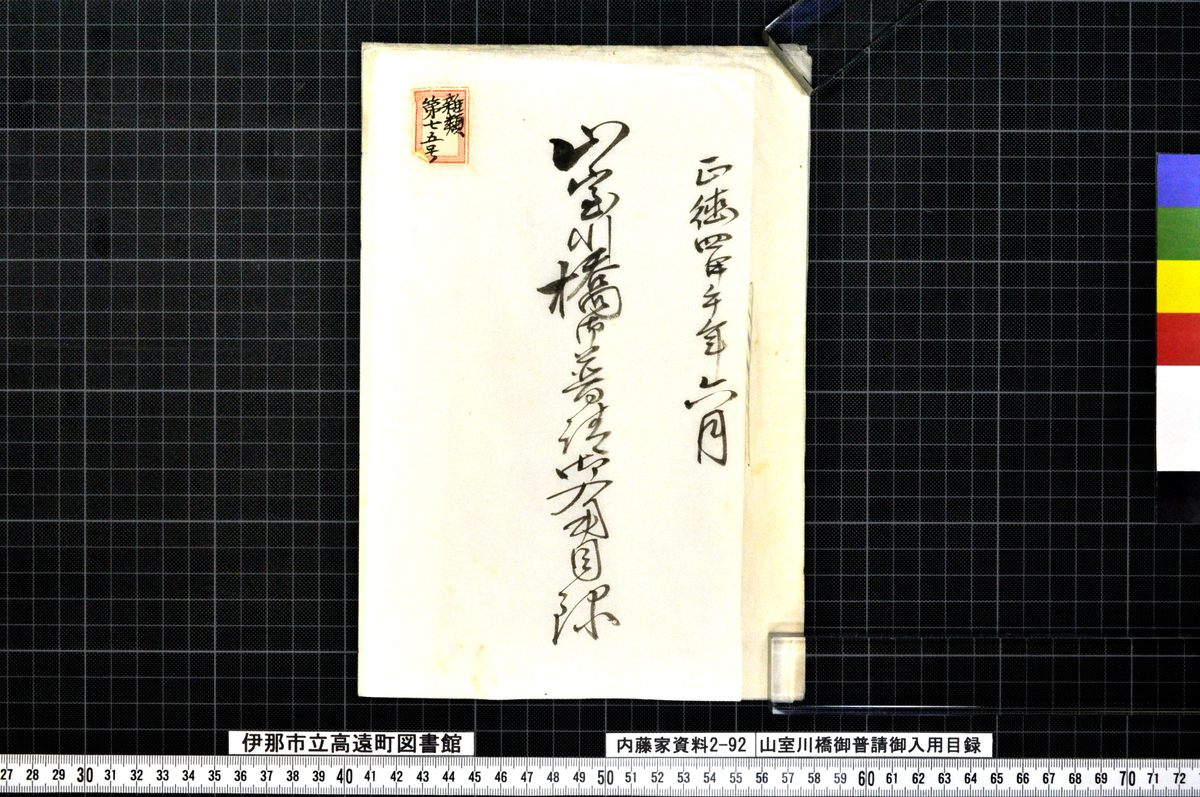 正徳四甲午年六月
山室川橋御普請御入用目録
雑類
第七五号
伊那市立高遠町図書館
内藤家資料2-92 山室川橋御普請御入用目録
27 28 29 30 31 32 33 34 35 36 37 38 39 40 41 42 43 44 45 46 47 48 49 50 51 52 53 54 55 56 57 58 59 60 61 62 63 64 65 66 67 68 69 70 71 72